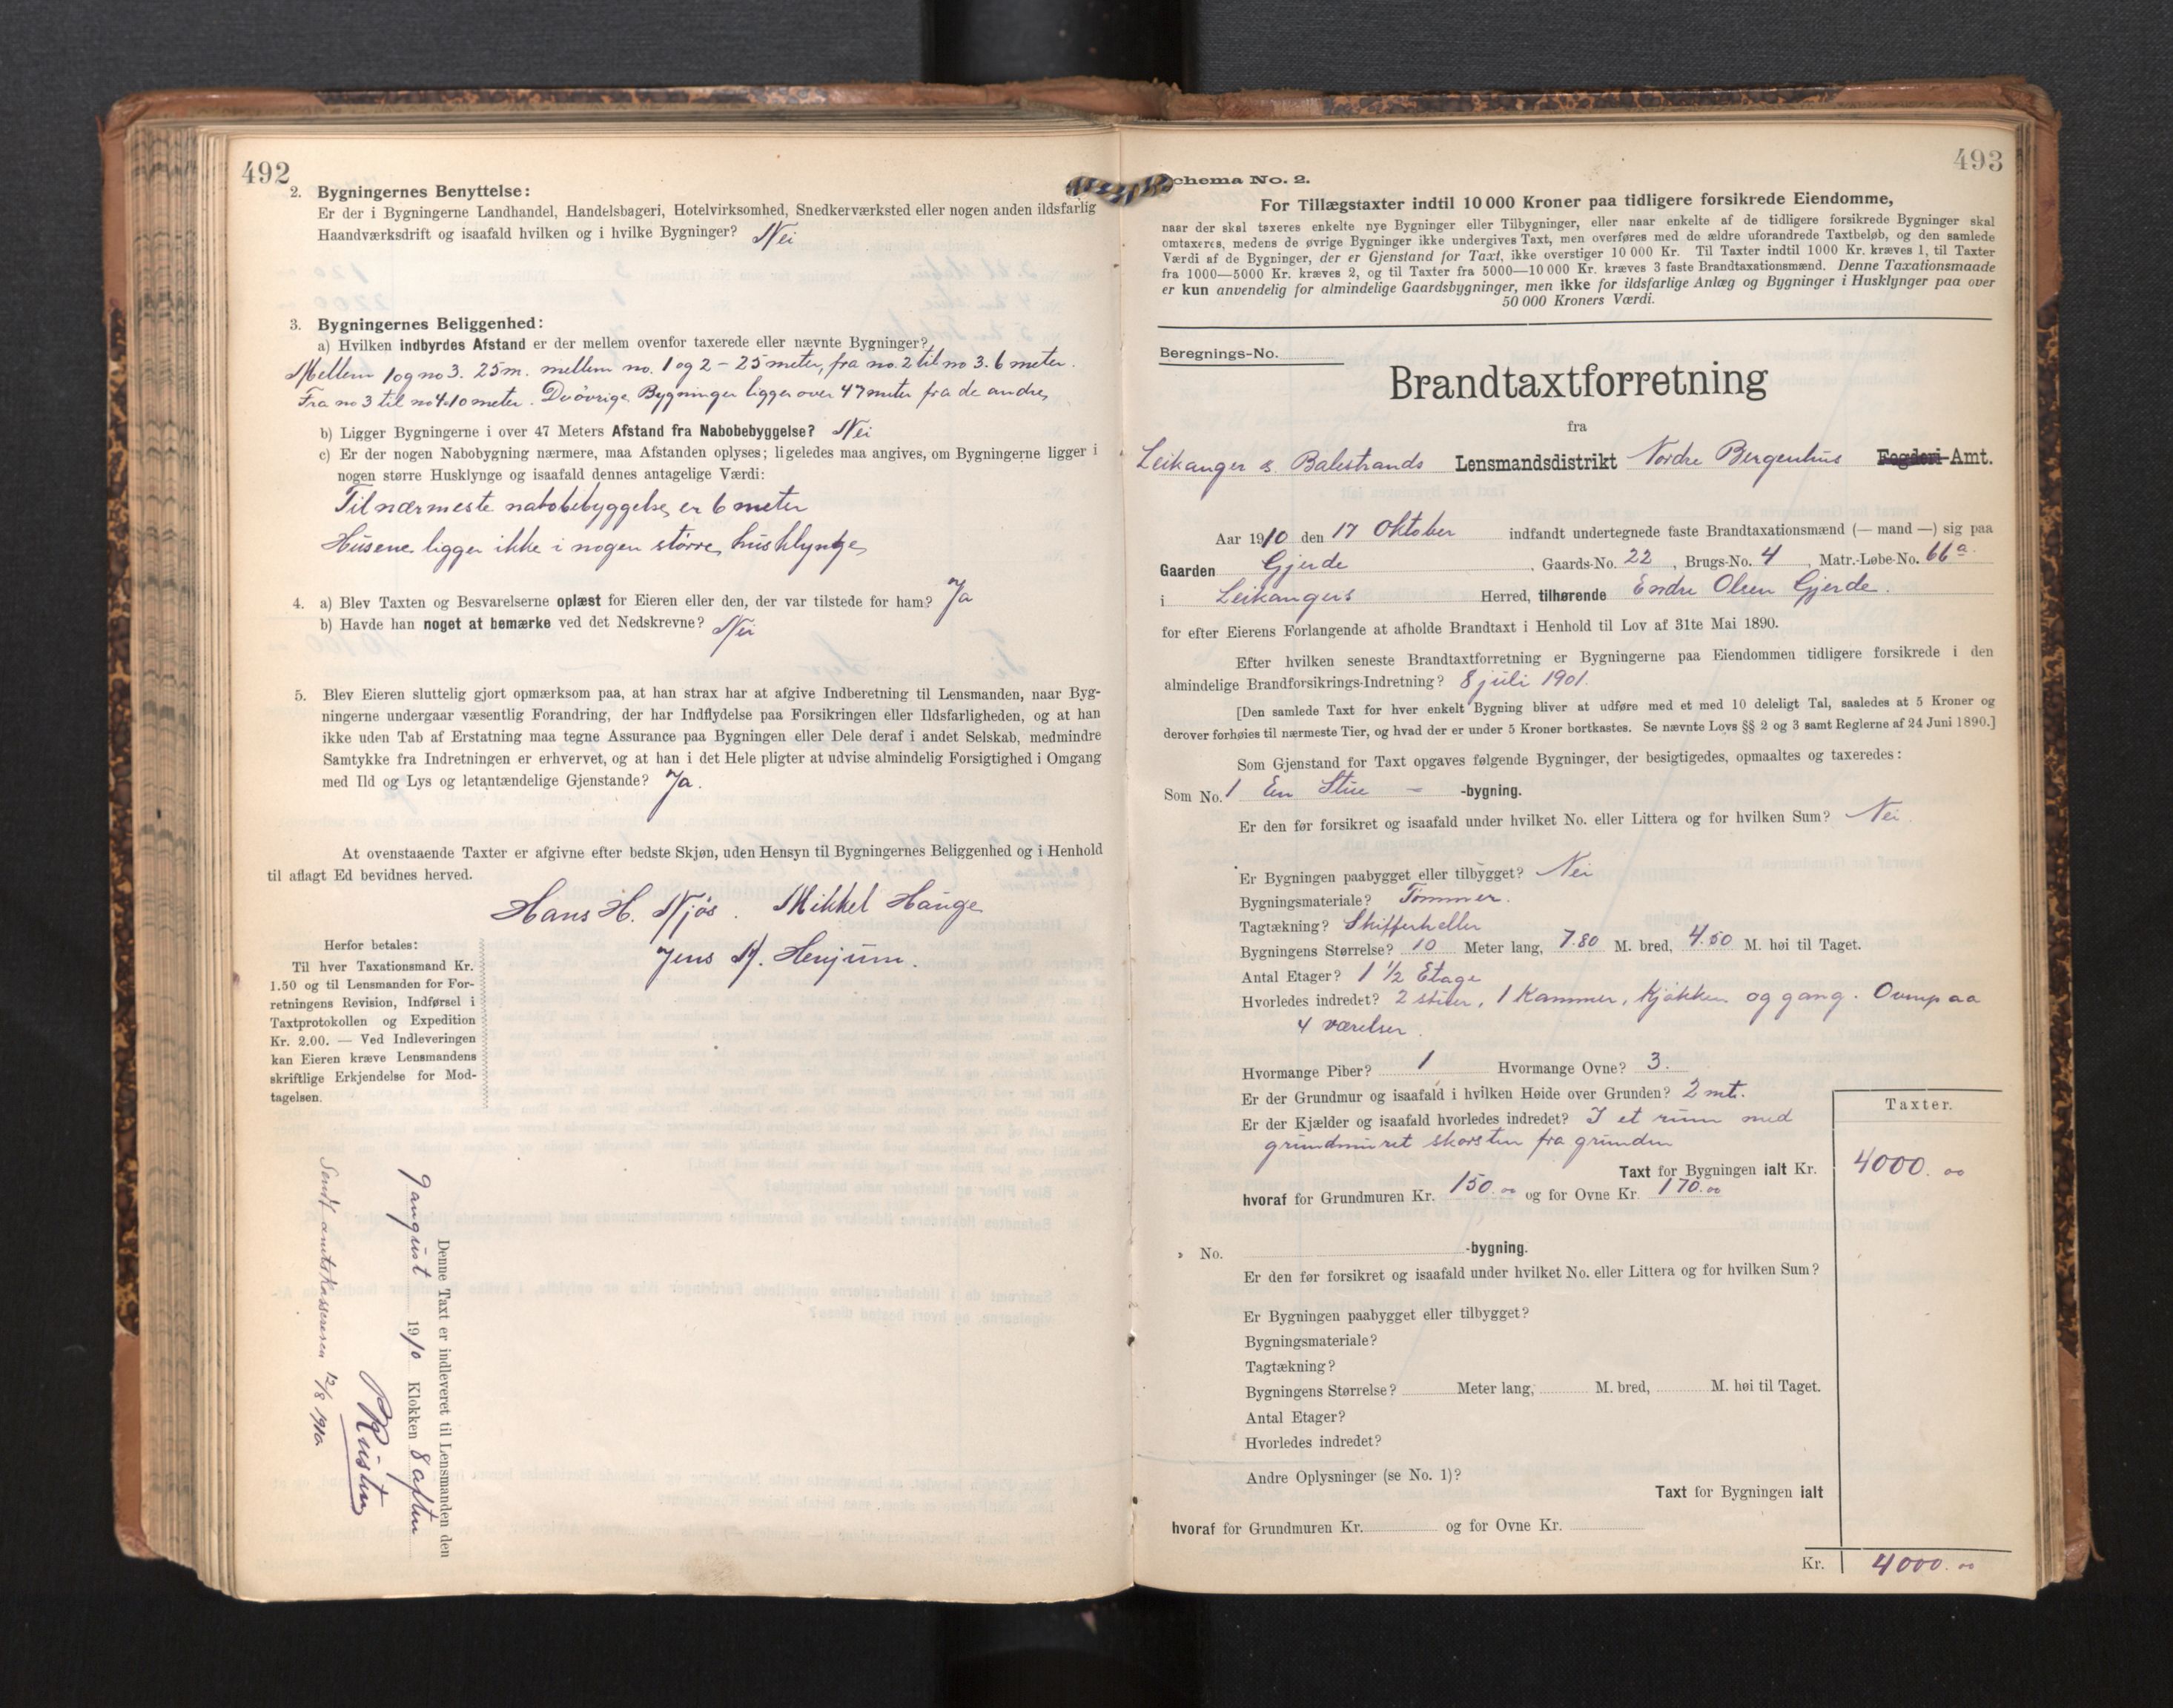 492
2. Bygningernes Benyttelse:
Er der i Bygningerne Landhandel, Handelsbageri, Hotelvirksomhed, Snedkerværksted eller nogen anden ildsfarlig
Haandværksdrift og isaafald hvilken og i hvilke Bygninger? Nei
3. Bygningernes Beliggenhed:
a) Hvilken indbyrdes Afstand er der mellem ovenfor taxerede eller nævnte Bygninger?
Mellem 1 og no 3. 25 m. mellem no. 1 og 2 - 25 meter, fra no. 2 til no 3. 6 meter.
Fra no 3 til no 4. 10 meter. De øvrige Bygninger ligger over 47 meter fra de andre
b) Ligger Bygningerne i over 47 Meters Afstand fra Nabobebyggelse? Nei
c) Er der nogen Nabobygning nærmere, maa Afstanden oplyses; ligeledes maa angives, om Bygningerne ligger i
nogen større Husklynge og isaafald dennes antagelige Værdi:
Til nærmeste nabobebyggelse er 6 meter
Husene ligger ikke i nogen større husklynge
4. a) Blev Taxten og Besvarelserne oplæst for Eieren eller den, der var tilstede for ham? Ja
b) Havde han noget at bemærke ved det Nedskrevne? Nei
5. Blev Eieren sluttelig gjort opmærksom paa, at han strax har at afgive Indberetning til Lensmanden, naar Byg-
ningerne undergaar væsentlig Forandring, der har Indflydelse paa Forsikringen eller Ildsfarligheden, og at han
ikke uden Tab af Erstatning maa tegne Assurance paa Bygningen eller Dele deraf i andet Selskab, medmindre
Samtykke fra Indretningen er erhvervet, og at han i det Hele pligter at udvise almindelig Forsigtighed i Omgang
med Ild og Lys og letantændelige Gjenstande? Ja.
At ovenstaaende Taxter er afgivne efter bedste Skjøn, uden Hensyn til Bygningernes Beliggenhed og i Henhold
til aflagt Ed bevidnes herved.
Hans H. Njøs. Mikkel Hauge
Jens Henjum.
Herfor betales:
Til hver Taxationsmand Kr.
1.50 og til Lensmanden for For-
retningens Revision, Indførsel i
Taxtprotokollen og Expedition
Kr. 2.00. — Ved Indleveringen
kan Eieren kræve Lensmandens
skriftlige Erkjendelse for Mod-
tagelsen.
Denne Taxt er indleveret til Lensmanden den
9 august 1910 Klokken 8 aften
Sendt amtskasseren 12/8 1910
493
Schema No. 2.
For Tillægstaxter indtil 10 000 Kroner paa tidligere forsikrede Eiendomme,
naar der skal taxeres enkelte nye Bygninger eller Tilbygninger, eller naar enkelte af de tidligere forsikrede Bygninger skal
omtaxeres, medens de øvrige Bygninger ikke undergives Taxt, men overføres med de ældre uforandrede Taxtbeløb, og den samlede
Værdi af de Bygninger, der er Gjenstand for Taxt, ikke overstiger 10 000 Kr. Til Taxter indtil 1000 Kr. kræves 1, til Taxter
fra 1000—5000 Kr. kræves 2, og til Taxter fra 5000—10 000 Kr. kræves 3 faste Brandtaxationsmænd. Denne Taxationsmaade
er kun anvendelig for almindelige Gaardsbygninger, men ikke for ildsfarlige Anlæg og Bygninger i Husklynger paa over
50 000 Kroners Værdi.
Beregnings-No.
Brandtaxtforretning
fra
Leikanger & Balestrands Lensmandsdistrikt Nordre Bergenhus Fogderi-Amt.
Aar 1910 den 17 Oktober indfandt undertegnede faste Brandtaxationsmænd (— mand —) sig paa
Gaarden Gjerde, Gaards-No. 22, Brugs-No. 4, Matr.-Løbe-No. 66a.
i Leikangers Herred, tilhørende Endre Olsen Gjerde.
for efter Eierens Forlangende at afholde Brandtaxt i Henhold til Lov af 31te Mai 1890.
Efter hvilken seneste Brandtaxtforretning er Bygningerne paa Eiendommen tidligere forsikrede i den
almindelige Brandforsikrings-Indretning? 8 juli 1901.
[Den samlede Taxt for hver enkelt Bygning bliver at udføre med et med 10 deleligt Tal, saaledes at 5 Kroner og
derover forhøies til nærmeste Tier, og hvad der er under 5 Kroner bortkastes. Se nævnte Lovs §§ 2 og 3 samt Reglerne af 24 Juni 1890.]
Som Gjenstand for Taxt opgaves følgende Bygninger, der besigtigedes, opmaaltes og taxeredes:
Som No. 1 En Stue - -bygning.
Er den før forsikret og isaafald under hvilket No. eller Littera og for hvilken Sum? Nei.
Er Bygningen paabygget eller tilbygget? Nei
Bygningsmateriale? Tømmer.
Tagtækning? Skifferheller
Bygningens Størrelse? 10 Meter lang, 7.80 M. bred, 4.50 M. høi til Taget.
Antal Etager? 1 1/2 Etage
Hvorledes indredet? 2 stuer, 1 Kammer, Kjøkken og gang. Ovenpaa
4 værelser.
Hvormange Piber? 1 Hvormange Ovne? 3.
Er der Grundmur og isaafald i hvilken Høide over Grunden? 2 mt.
Er der Kjælder og isaafald hvorledes indredet? I et rum med
grundmuret skorsten fra grunden
Taxter.
Taxt for Bygningen ialt Kr. 4000.00
hvoraf for Grundmuren Kr. 150.00 og for Ovne Kr. 170.00
» No. -bygning.
Er den før forsikret og isaafald under hvilket No. eller Littera og for hvilken Sum?
Er Bygningen paabygget eller tilbygget?
Bygningsmateriale?
Tagtækning?
Bygningens Størrelse? Meter lang, M. bred, M. høi til Taget.
Antal Etager?
Hvorledes indredet?
Andre Oplysninger (se No. 1)?
Taxt for Bygningen ialt
hvoraf for Grundmuren Kr. og for Ovne Kr.
Kr. 4000.00